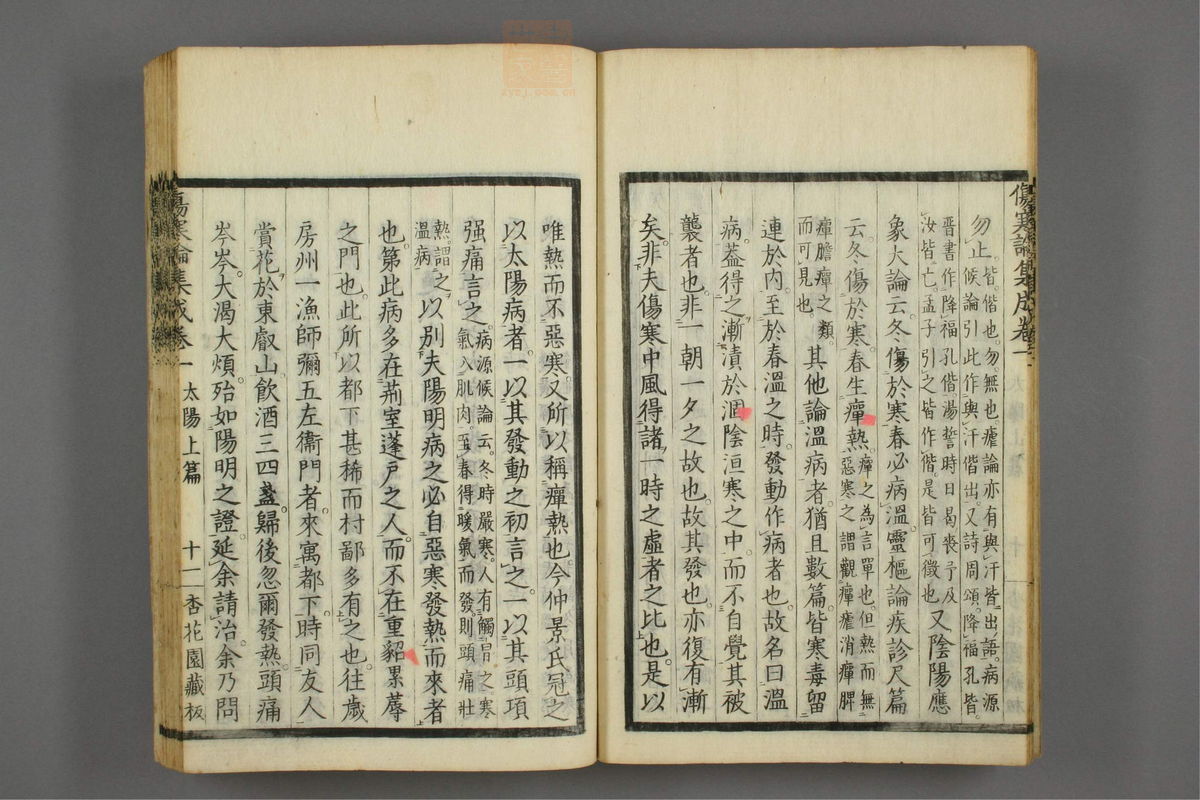 傷寒論集成卷一
勿止。皆。偕也。勿。無也。瘧論亦有與汗皆出語。病源
候論引此作與汗偕出。又詩周頌。降福孔皆。
晉書作降福孔偕。湯誓時日曷喪。予及
汝皆亡。孟子引之皆作偕。是皆可徵也又陰陽應
象大論云。冬傷於寒。春必病溫。靈樞論疾診尺篇
云。冬傷於寒。春生癉熱。癉之為言單也。但熱而無
惡寒之謂。觀癉瘧消癉脾
癉膽癉之類。
而可見也其他論溫病者。猶且數篇。皆寒毒留
連於內。至於春溫之時。發動作病者也。故名曰溫
病。蓋得之漸漬於涸陰沍寒之中。而不自覺其被
襲者也。非一朝一夕之故也。故其發也。亦復有漸
矣。非夫傷寒中風得諸一時之虛者之比也。是以
唯熱而不惡寒。又所以稱癉熱也。今仲景氏冠之
以太陽病者。一以其發動之初言之。一以其頭項
强痛言之。病源候論云。冬時嚴寒。人有觸冒之寒
氣入肌肉。至春得暖氣而發。則頭痛壯
熱。謂之
溫病以別夫陽明病之必自惡寒發熱而來者
也。第此病多在荊室蓬戶之人。而不在重貂累蓐
之門也。此所以都下甚稀而村鄙多有之也。往歲
房州一漁師彌五左衞門者。來寓都下。時同友人
賞花於東叡山。飲酒三四盞。歸後忽爾發熱。頭痛
岑岑。大渴大煩。殆如陽明之證。延余請治。余乃問
傷寒論集成卷一 太陽上篇 十一 杏花園藏板